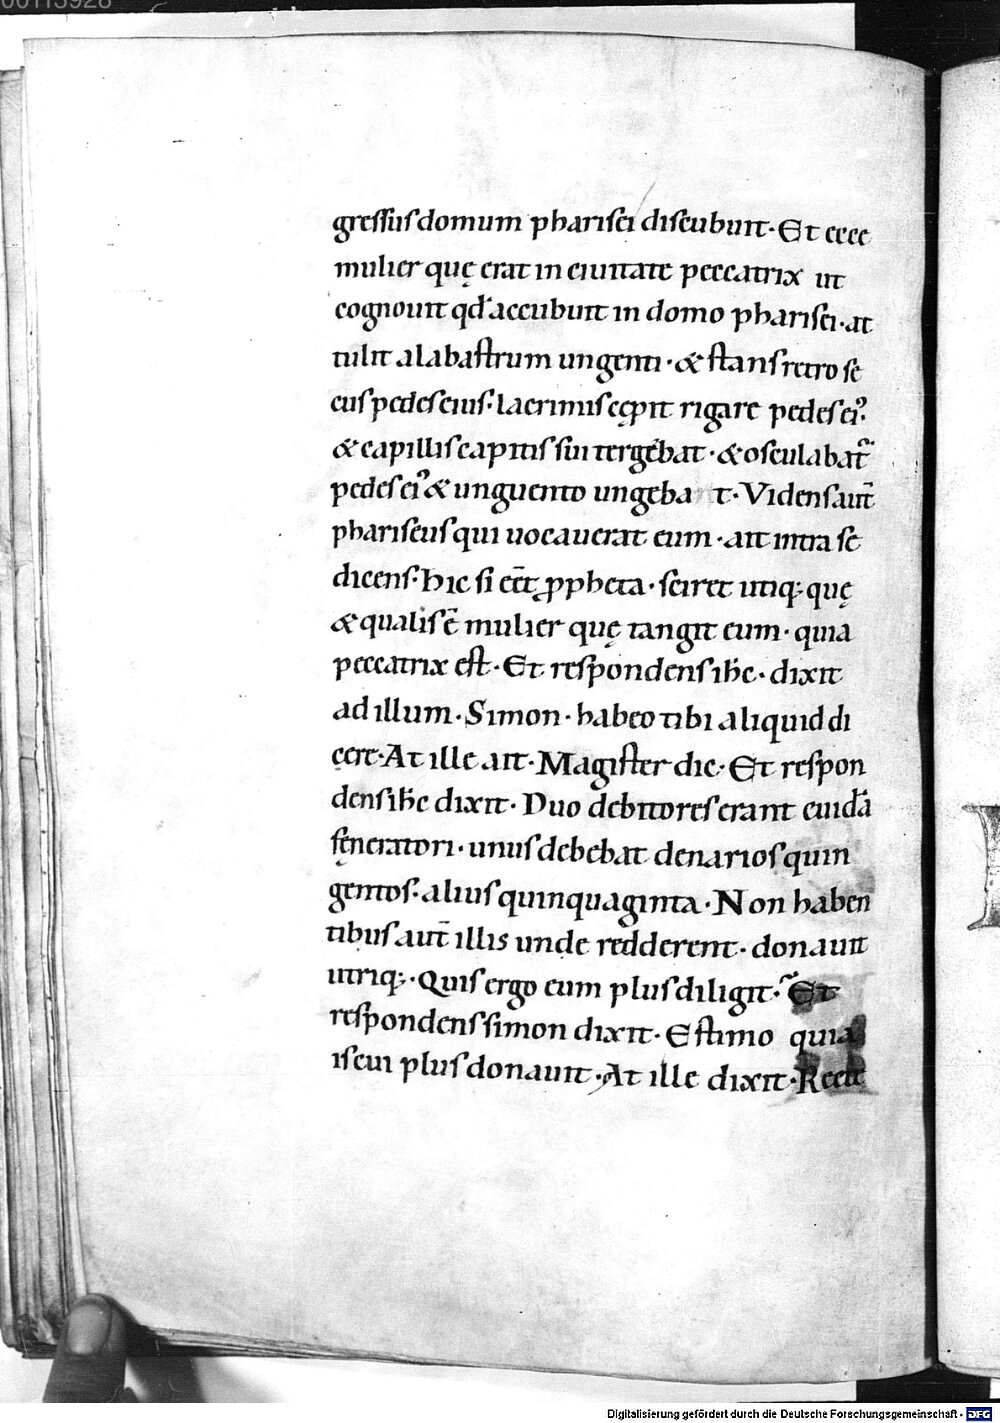 00113928
gressus domum pharisei discubuit. Et ecce
mulier quę erat in ciuitate peccatrix ut
cognouit qd̕ accubuit in domo pharisei. at
tulit alabastrum ungenti. & stans retro se
cus pedes eius. lacrimis cępit rigare pedes ei᾿.
& capillis capitis sui tergebat. & osculabat᷑
pedes ei᾿ & unguento ungeba t. Videns aut̄
phariseus qui uocauerat eum. ait intra se
dicens. Hic si eēt ꝓpheta. sciret utiq; quę
& qualis ē mulier quę tangit eum. quia
peccatrix est. Et respondens ih̄c. dixit
ad illum. Simon. habeo tibi aliquid di
cere. At ille ait. Magister dic. Et respon
dens ih̄c dixit. Duo debitores erant cuidā
fęneratori. unus debebat denarios quin
gentos. alius quinquaginta. Non haben
tibus aut̄ illis unde redderent. donauit
utriq;. Quis ergo eum plus diligit. Et
respondens simon dixit. Estimo quia
is cui plus donauit. At ille dixit. Recte
Digitalisierung gefördert durch die Deutsche Forschungsgemeinschaft - DFG